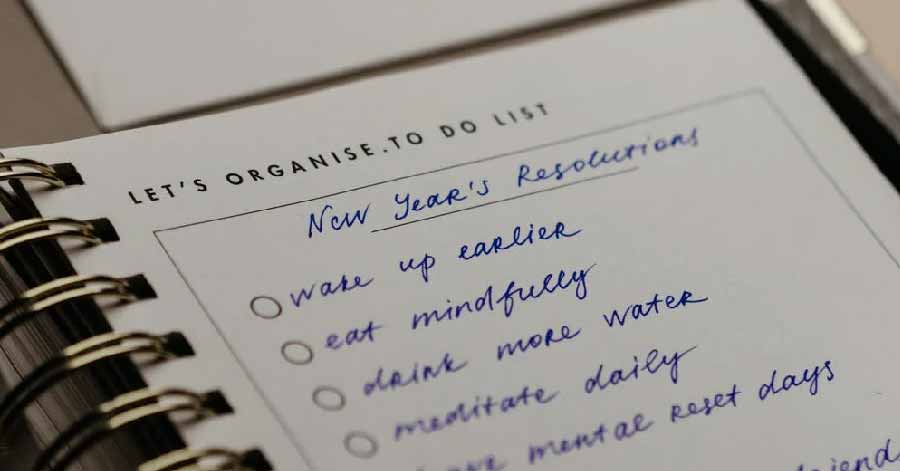 LET'S ORGANISE.TO DO LIST
New Year's Resolutions
wake up earlier
eat mindfully
drink more water
meditate daily
mental reset days